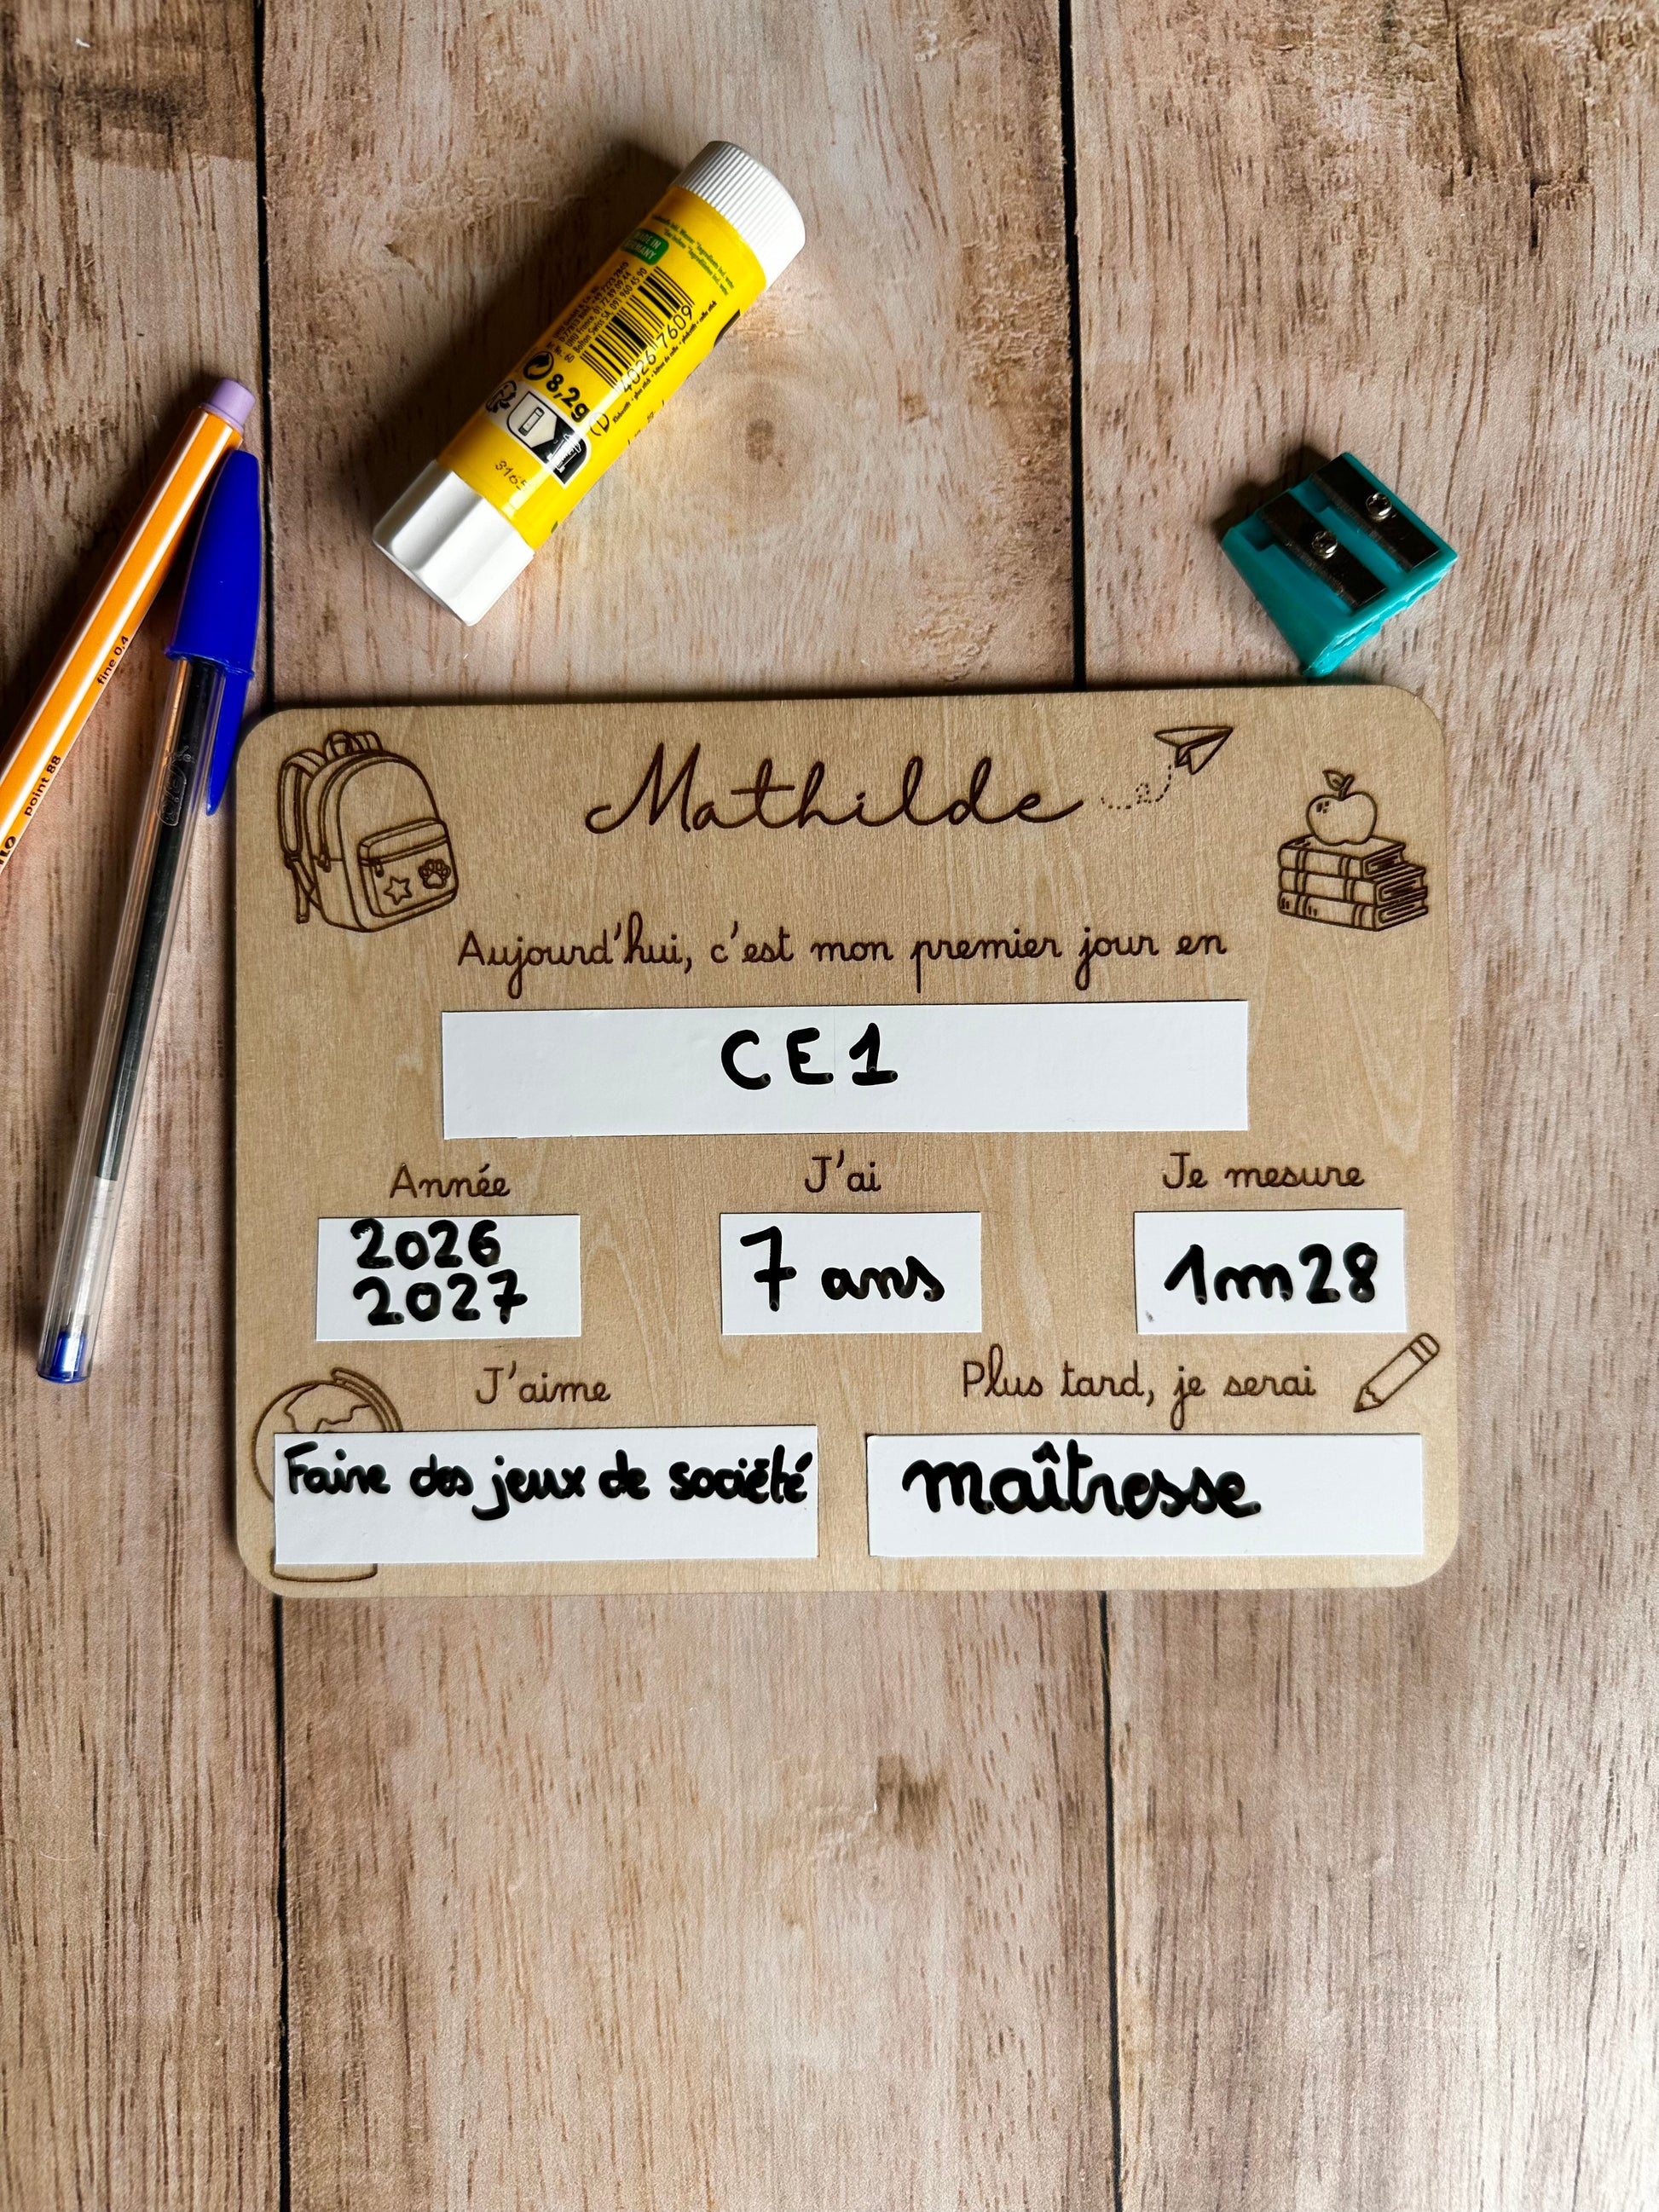 MADE IN
GERMANY
4026 7609
8,2g
3165
fine 0.4
point 88
Mathilde
Aujourd'hui, c'est mon premier jour en
CE1
Année
J'ai
Je mesure
2026
2027
7 ans
1m28
J'aime
Plus tard, je serai
Faire des jeux de société
maîtresse